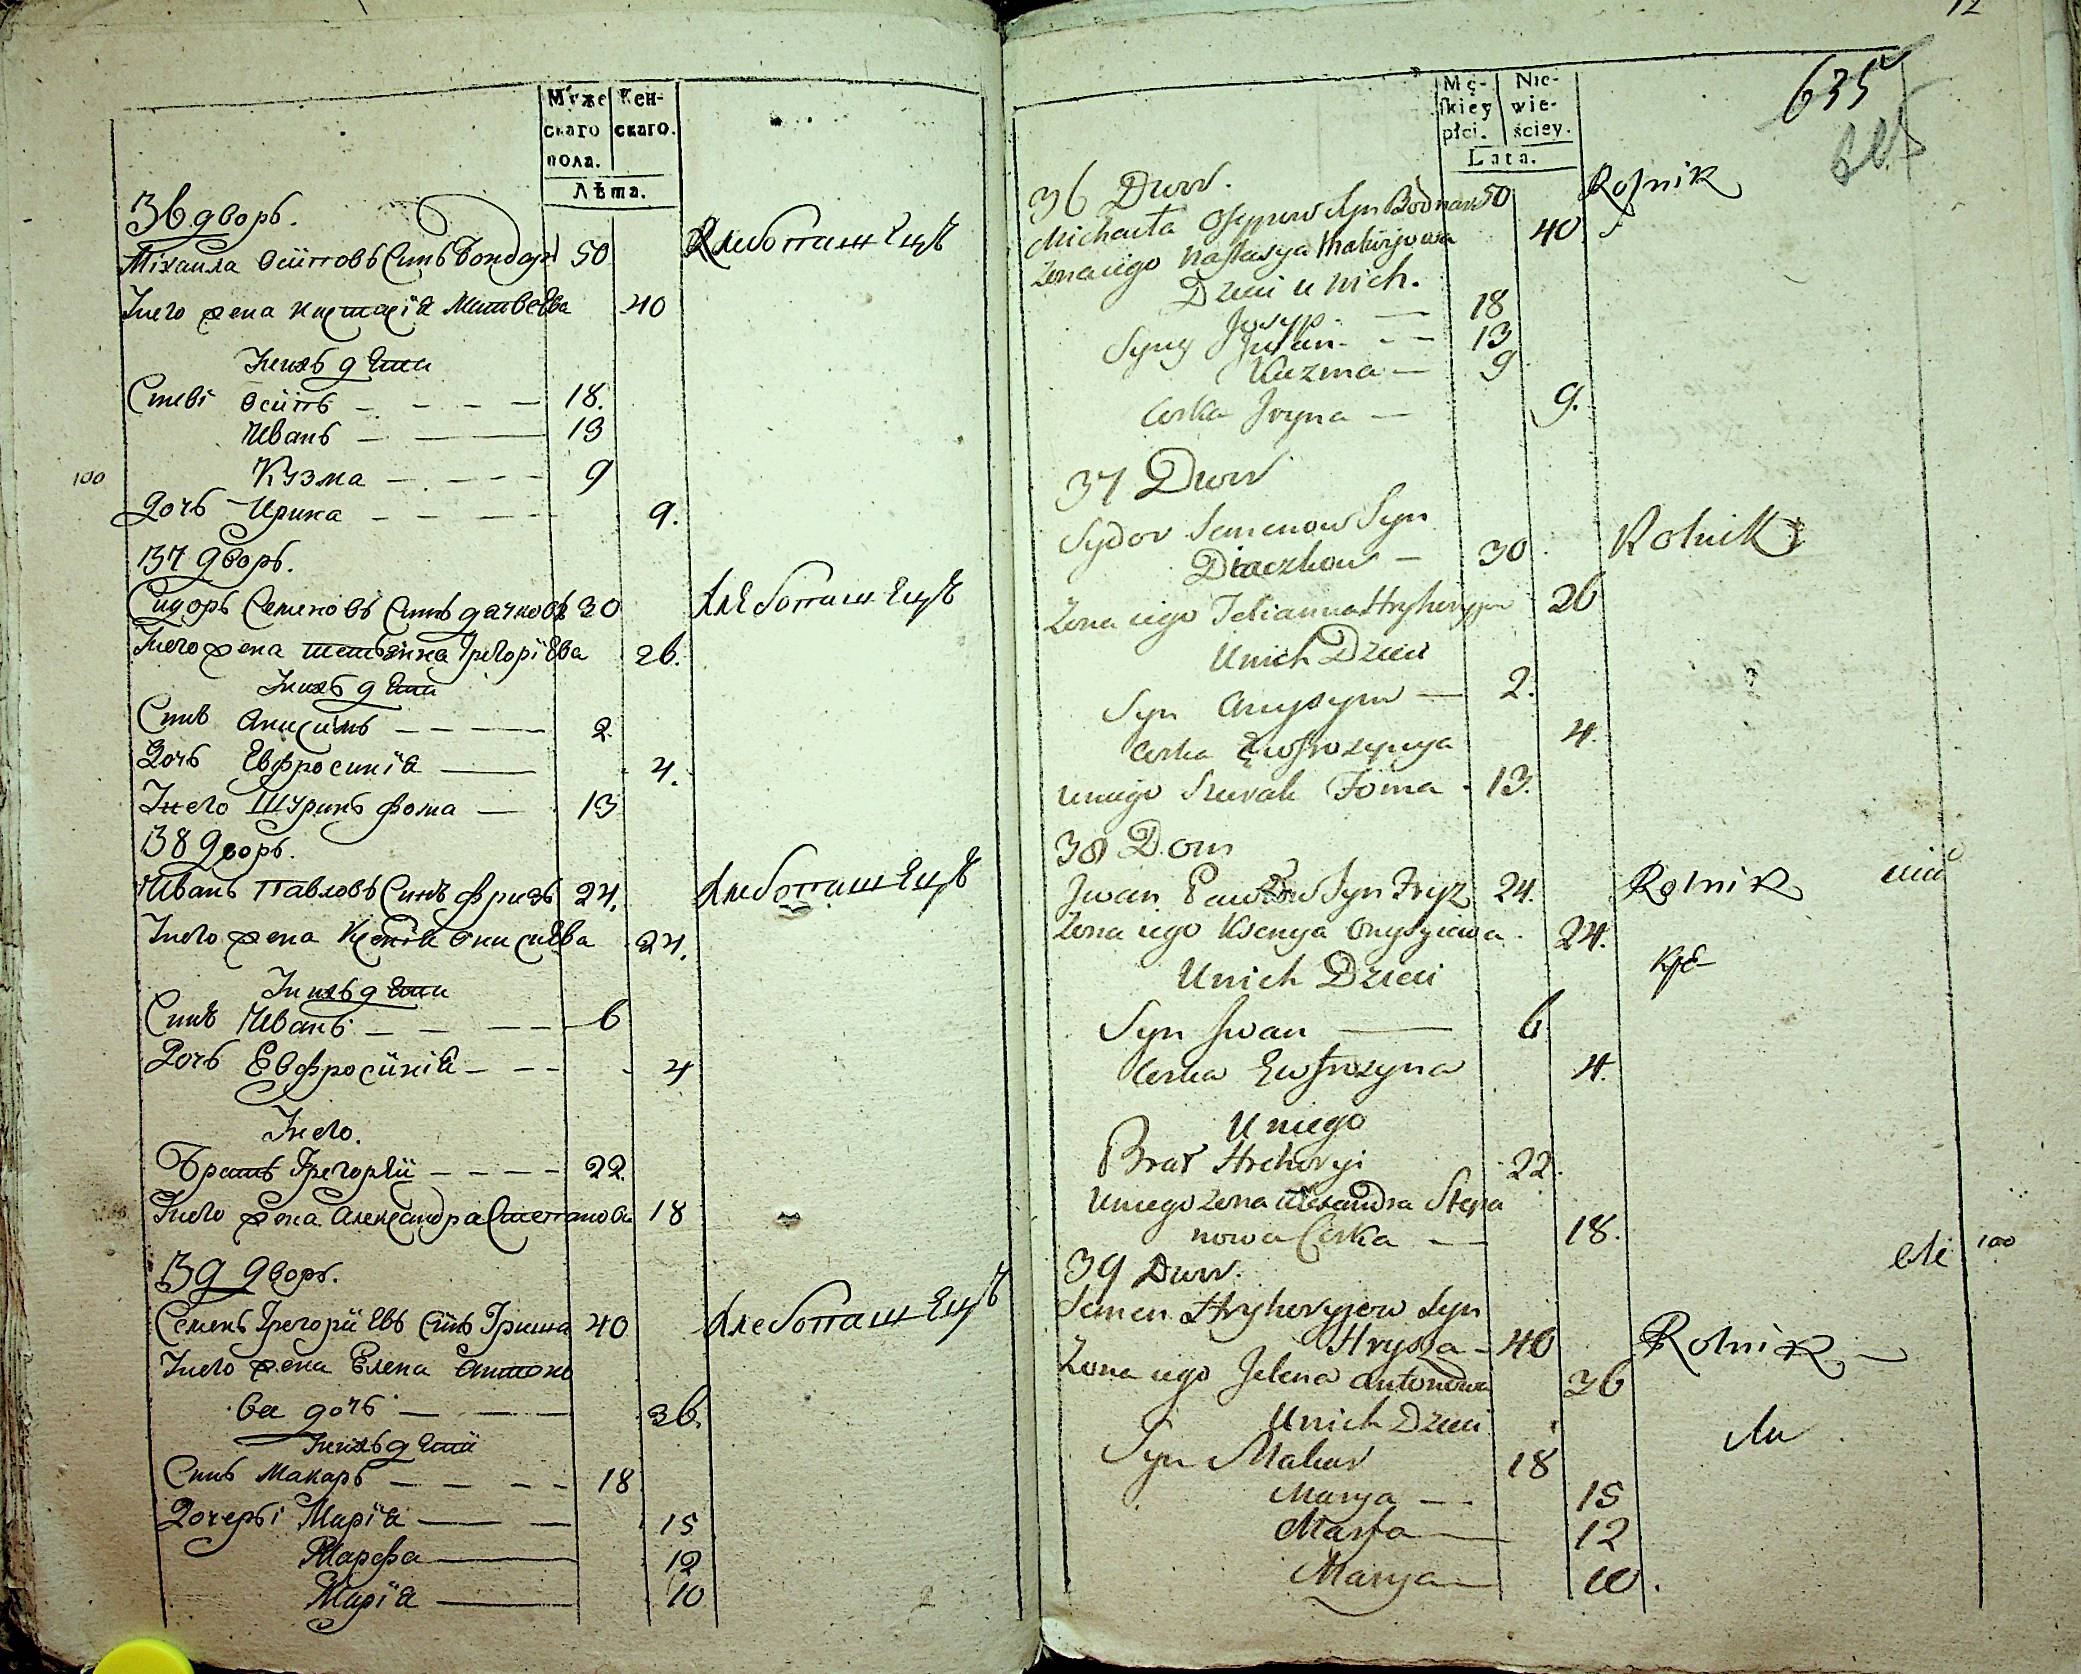 Муже Жен-
скаго скаго.
пола.
Лѣта.
36 дворъ.
Міхаила Осиповъ Синъ Бондарь 50 Хлебопашецъ
Унего жена Настасія Матвеева 40
Унихъ дети
Сыны Осипъ 18.
Иванъ 13
100 Кузма 9
Дочь Ирина 9.
37 дворъ.
Сидоръ Семеновъ Синъ дячковъ 30 Хлебопашецъ
Унего жена Тетянна Григоріева 26.
Унихъ дети
Синъ Анисимъ 2.
Дочь Евфросинія 4.
Унего Шуринъ Фома 13
38 дворъ.
Иванъ Павловъ Синъ Фризъ 24. Хлебопашецъ
Унего жена Ксенія Онисиева 24.
Унихъ дети
Синъ Иванъ 6
Дочь Евфросинія 4
Унего.
Братъ Григорій 22.
Унего жена Александра Степанова 18
39 дворъ.
Семенъ Григоріевъ Синъ Гриша 40 Хлебопашецъ
Унего жена Елена Антоно
ва дочь 36.
Унихъ дети
Синъ Макаръ 18
Дочеры Марія 15
Марфа 12
Марія 10
12
635
Mę- Nie-
skiey wie-
płci. ściey.
Lata.
36 Dwor. Rolnik
Michayła Osypow Syn Bodnar 50
Żona iego Nastasya Matwijowa 40
Dzieci u nich.
Josyp. 18
Syny Iwan. 13
Kuzma 9
Corka Jryna 9.
37 Dwor
Sydor Semenow Syn
Diaczkow 30 Rolnik
Żona iego Tetianna Hryhoryjow 26
Unich Dzieci
Syn Anysym 2.
Corka Ewfrozynya 4.
uniego Szurak Foma 13.
38 Dom
Jwan Pawłow Syn Fryz 24. Rolnik
Żona iego Ksenya Onysyiewa 24.
Unich Dzieci
Syn Jwan 6
Corka Ewfrozyna 4.
Uniego
Brat Hrehoryi 22.
Uniego Żona Alexandra Stepa
nowa Corka 18.
39 Dwor. 100
Semen Hryhoryjow Syn
Hrysza 40 Rolnik
Żona iego Jelena Antonowa 36
Unich Dzieci
Syn Makar 18
Marya 15
Marfa 12
Marya 10.